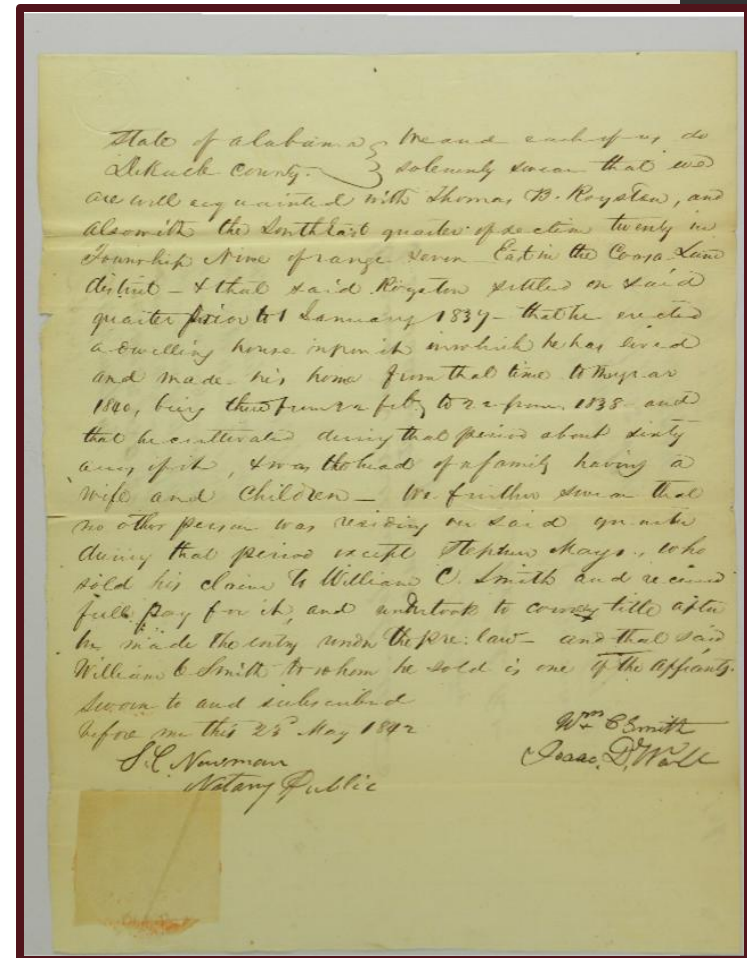 State of Alabama } We and each of us do
DeKalb County. } solemnly swear that we
are well acquainted with Thomas B. Royston, and
also with the South East quarter of section twenty in
Township Nine of range seven East in the Coosa Land
district – & that said Royston settled on said
quarter prior to 1 January 1837 – that he erected
a dwelling house upon it in which he has lived
and made his home from that time to the year
1840, being there from 22 feby to 22 1838 and
that he cultivated during that period about sixty
acres of it, & was the head of a family having a
wife and Children – We further swear that
no other person was residing on said quarter
during that period except Stephen Mays, who
sold his claim to William C. Smith and received
full pay for it, and undertook to convey title after
he made the entry under the pre: law – and that said
William C Smith to whom he sold is one of the affiants.
Sworn to and subscribed
before me this 23d May 1842
Wm C Smith
Isaac D.
S. C. Newman
Notary Public